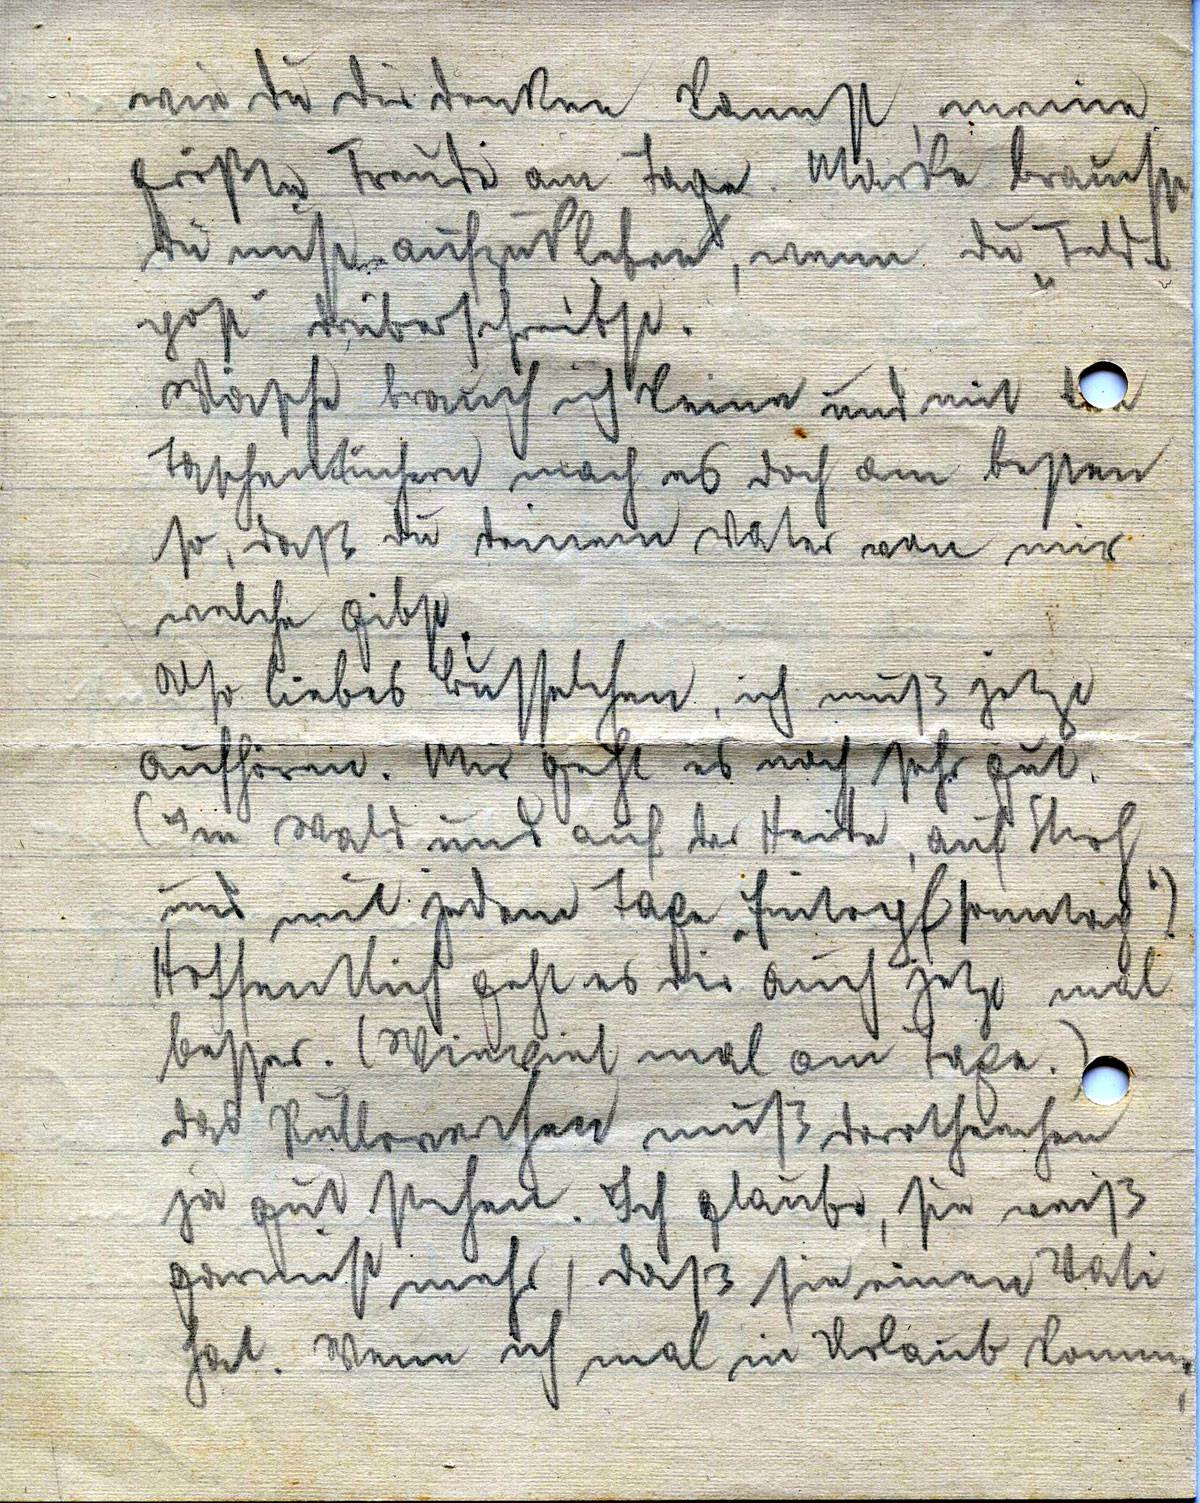 wie du dir denken kannst, meine
größte Freude am Tage. Marke brauchst
du nicht aufzukleben, wenn du „Feld-
post" drüberschreibst.
Wäsche brauch ich keine und mit den
Taschentüchern mach es doch am besten
so, daß du deinem Vater von mir
welche gibst.
Also liebes Busselchen, ich muß jetzt
aufhören. Mir geht es noch sehr gut.
(Im Wald und auf der Heide, auf Stroh
und mit jedem Tage „Eintopfsonntag")
Hoffentlich geht es dir auch jetzt mal
besser. (Wieviel mal am Tage.)
Das Pulloverchen muß Dorotheechen
ja gut stehen. Ich glaube, sie weiß
garnicht mehr, daß sie einen Vati
hat. Wenn ich mal in Urlaub komme,